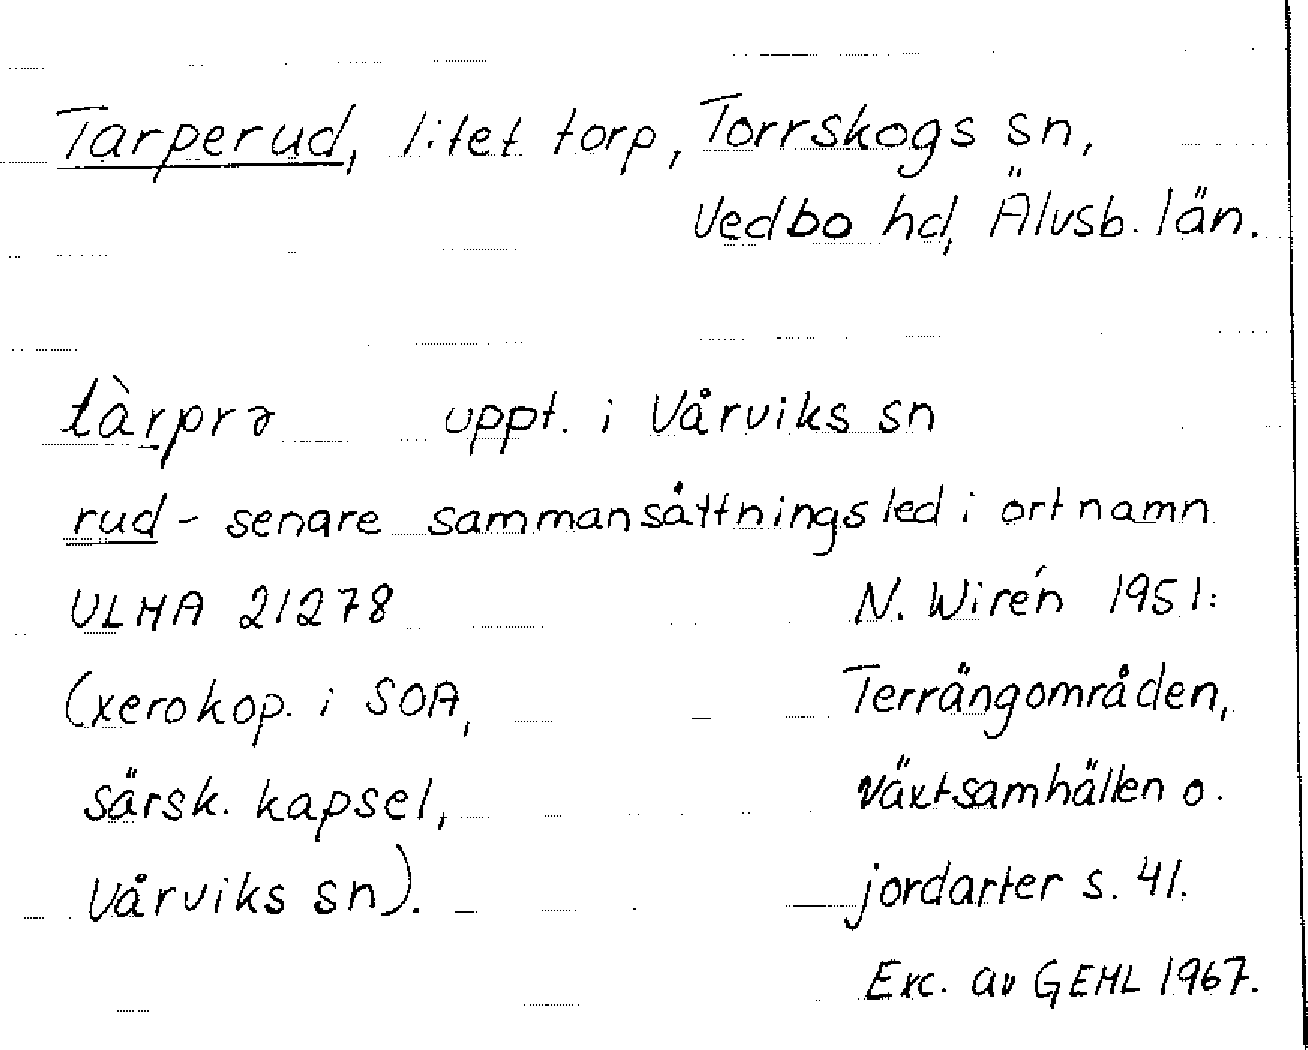 Tarperud, litet torp, Torrskogs sn,
Vedbo hd, Älvsb. län.
tàrprə uppt. i Vårviks sn
rud - senare sammansättningsled i ortnamn
ULMA 21278 N. Wirén 1951:
(xerokop. i SOA, Terrängområden,
särsk. kapsel, växtsamhällen o.
Vårviks sn). jordarter s. 41.
Exc. av GEHL 1967.